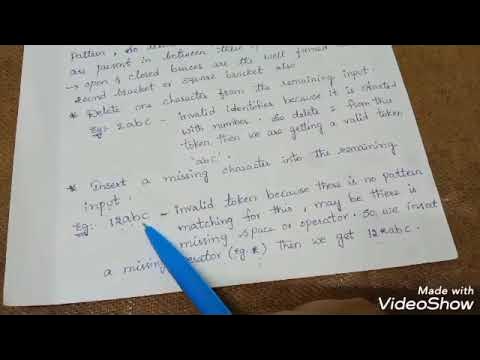 pattern, so
are present in between these
→ open & closed braces are the well formed
round bracket or square bracket also
* Delete one character from the remaining input.
Eg:- 2abc – invalid identifier because it is started
with number. So delete 2 from this
token then we are getting a valid token
"abc".
* Insert a missing character into the remaining
input.
Eg: 12abc – invalid token because there is no pattern
matching for this, may be there is
missing space or operator. So, we insert
a missing operator (eg. *) Then we get 12*abc.
Made with
VideoShow